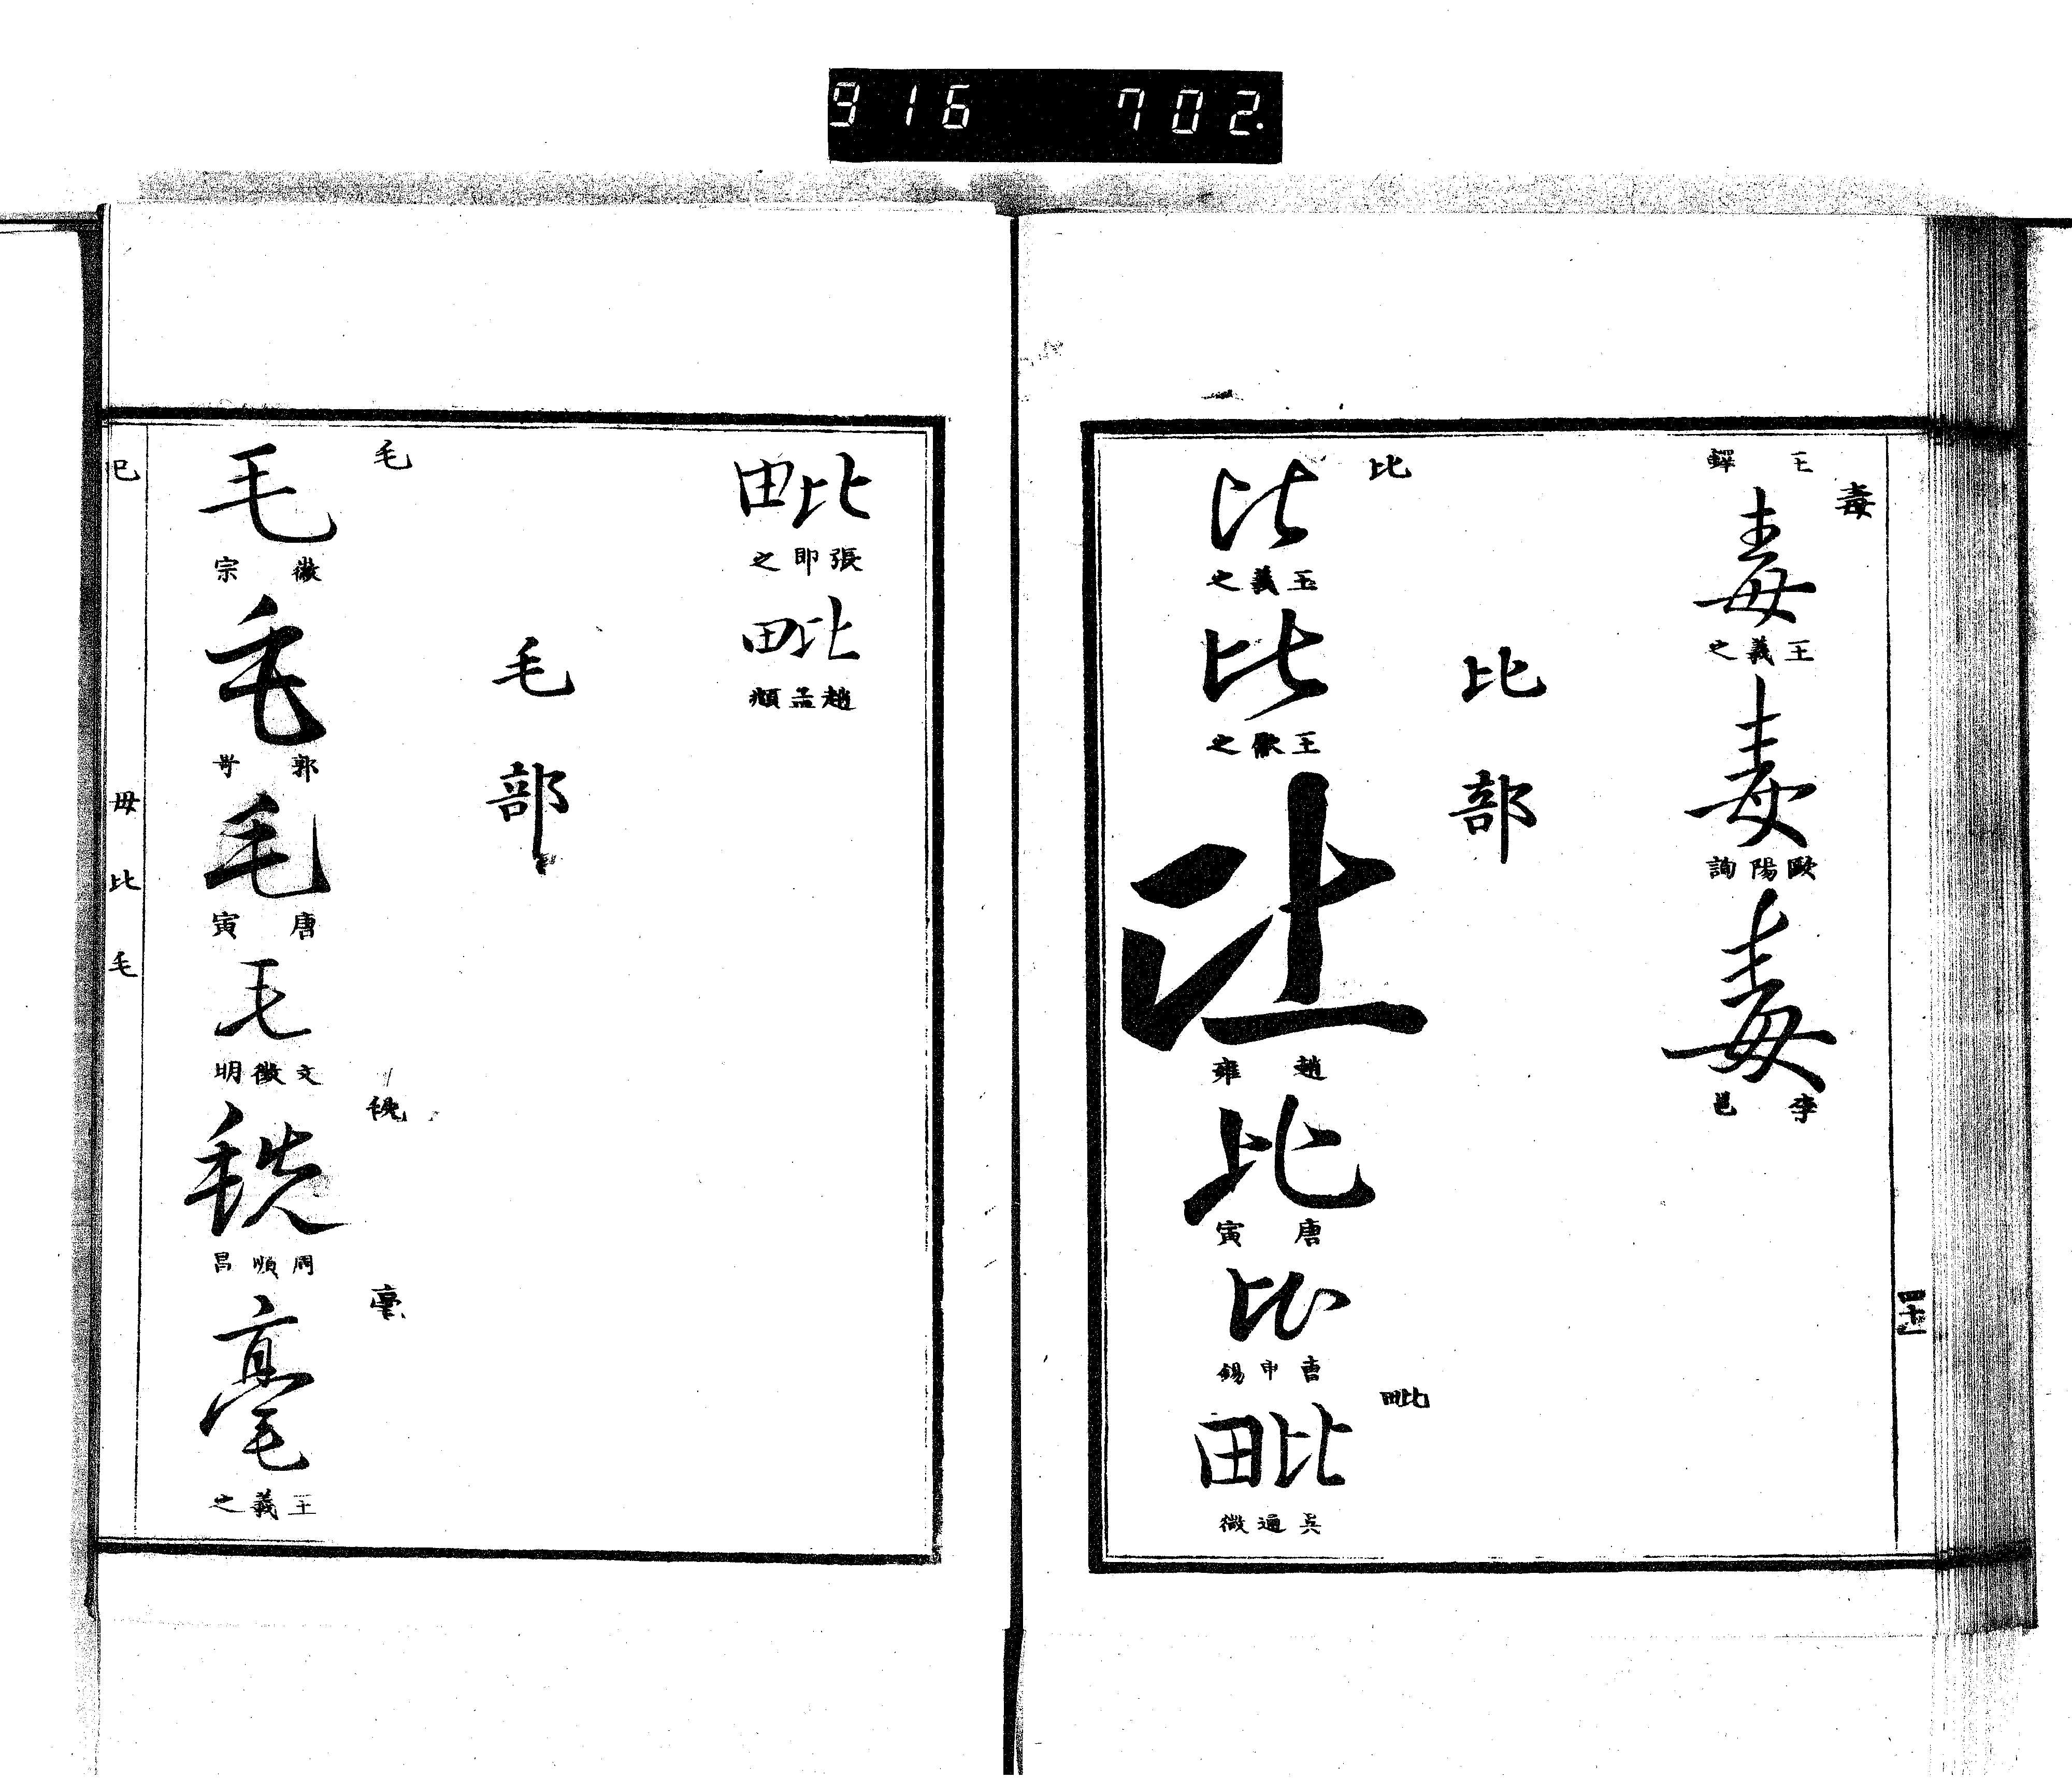 916 702.
毒
王鐸
毒
王羲之
毒
歐陽詢
毒
李邕
比部
比
比
王羲之
比
王獻之
比
趙雍
比
唐寅
比
曹申錫
毗
毗
吳通微
毗
張即之
毗
趙孟頫
毛部
毛
毛
徽宗
毛
郭畀
毛
唐寅
毛
文徵明
毨
毨
周順昌
毫
毫
王羲之
巳 毋 比 毛